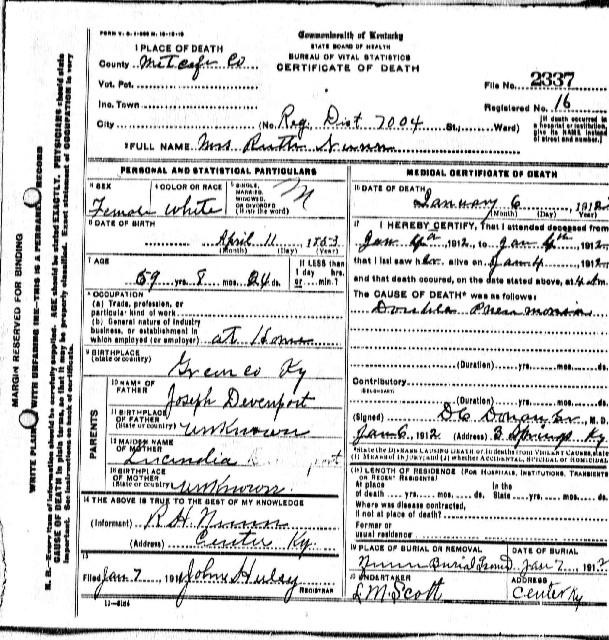 FORM V. S. 1-
Commonwealth of Kentucky
STATE BOARD OF HEALTH
BUREAU OF VITAL STATISTICS
CERTIFICATE OF DEATH
1 PLACE OF DEATH
County Metcalfe Co
Vot. Pct.
Inc. Town
City
(No. Reg. Dist 7004 St.; Ward)
File No. 2337
Registered No. 16
[If death occurred in a hospital or institution, give its NAME instead of street and number.]
2 FULL NAME Mrs Ruth Nunn
PERSONAL AND STATISTICAL PARTICULARS
3 SEX
Female
4 COLOR OR RACE
White
5 SINGLE, MARRIED, WIDOWED, OR DIVORCED (Write the word)
M
6 DATE OF BIRTH
April 11
(Month) (Day) (Year)
7 AGE
59 yrs. 8 mos. 24 ds.
If LESS than 1 day hrs. or min.?
8 OCCUPATION
(a) Trade, profession, or particular kind of work
(b) General nature of industry business, or establishment in which employed (or employer) at Home
9 BIRTHPLACE
(State or country)
Green co Ky
PARENTS
10 NAME OF FATHER Joseph Devenport
11 BIRTHPLACE OF FATHER
(State or country) unknown
12 MAIDEN NAME OF MOTHER Lucindia
13 BIRTHPLACE OF MOTHER
(State or country) unknown
14 THE ABOVE IS TRUE TO THE BEST OF MY KNOWLEDGE
(Informant) R H Nunn
(Address) Center Ky.
15
Filed Jan 7 191 John Huley
REGISTRAR
MEDICAL CERTIFICATE OF DEATH
16 DATE OF DEATH
January 6, 1912
(Month) (Day) (Year)
17 I HEREBY CERTIFY, That I attended deceased from
Jan 4th, 1912, to Jan 4th 1912
that I last saw her alive on Jan 4 1912
and that death occured, on the date stated above, at 4 m
The CAUSE OF DEATH* was as follows:
Double Pneumonia
(Duration) yrs. mos. ds.
Contributory
(Duration) yrs. mos. ds.
(Signed) , M. D.
Jan 6, 1912 (Address) Ky
*State the DISEASE CAUSING DEATH or in deaths from VIOLENT CAUSES, state (1) MEANS OF INJURY; and (2) whether ACCIDENTAL, SUICIDAL or HOMICIDAL.
18 LENGTH OF RESIDENCE (For Hospitals, Institutions, Transients or Recent Residents)
At place of death yrs. mos. ds.
In the State yrs. mos. ds.
Where was disease contracted, if not at place of death?
Former or usual residence
19 PLACE OF BURIAL OR REMOVAL
Nunn Burial Ground
DATE OF BURIAL
Jan 7, 191
20 UNDERTAKER
L M. Scott
ADDRESS
Center Ky
MARGIN RESERVED FOR BINDING